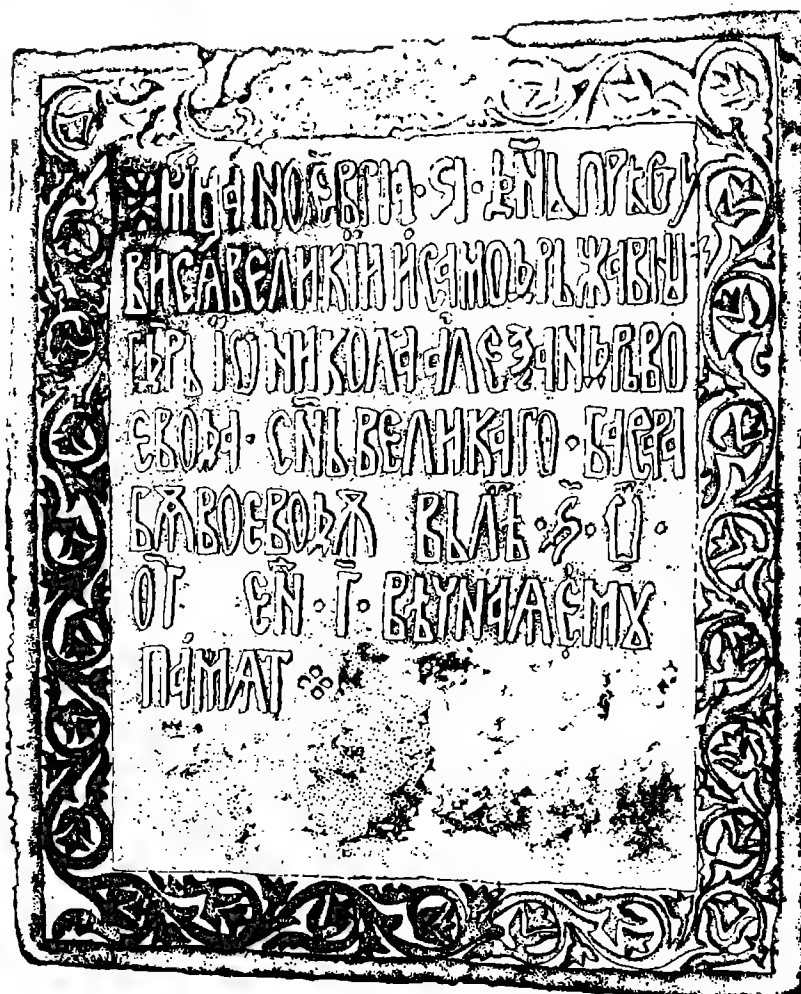 ※ мц҃а ноеврїа · ѕ҃і · дн҃ь прѣс
ви сѧ великїи и самодрьжавнїи
гд҃рь їѡ никола алеѯандрь во
евода · сн҃ь великаго · басара
бѫ воеводѫ вь лѣ · ѕ҃ · ѡ҃ ·
от ен҃ · г҃ · вѣчнаа емꙋ
памат ⁘